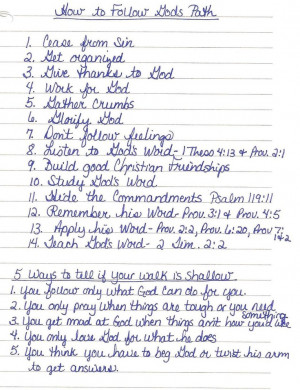 How to Follow Gods Path
1. Cease from Sin
2. Get organized
3. Give thanks to God
4. Work for God
5. Gather Crumbs
6. Glorify God
7. Don't follow feelings
8. Listen to God's Word - 1 Thess 4:13 & Prov. 2:1
9. Build good Christian friendships
10. Study God's Word
11. Hide the Commandments Psalm 119:11
12. Remember his Word - Prov. 3:1 & Prov. 4:5
13. Apply his Word - Prov. 2:2, Prov. 6:20, Prov 7:1&2
14. Teach God's Word - 2 Tim. 2:2
5 Ways to tell if your walk is shallow.
1. You follow only what God can do for you
2. You only pray when things are tough or you need something
3. You get mad at God when things ain't how you'd like
4. You only love God for what he does
5. You think you have to beg God or twist his arm
to get answers.